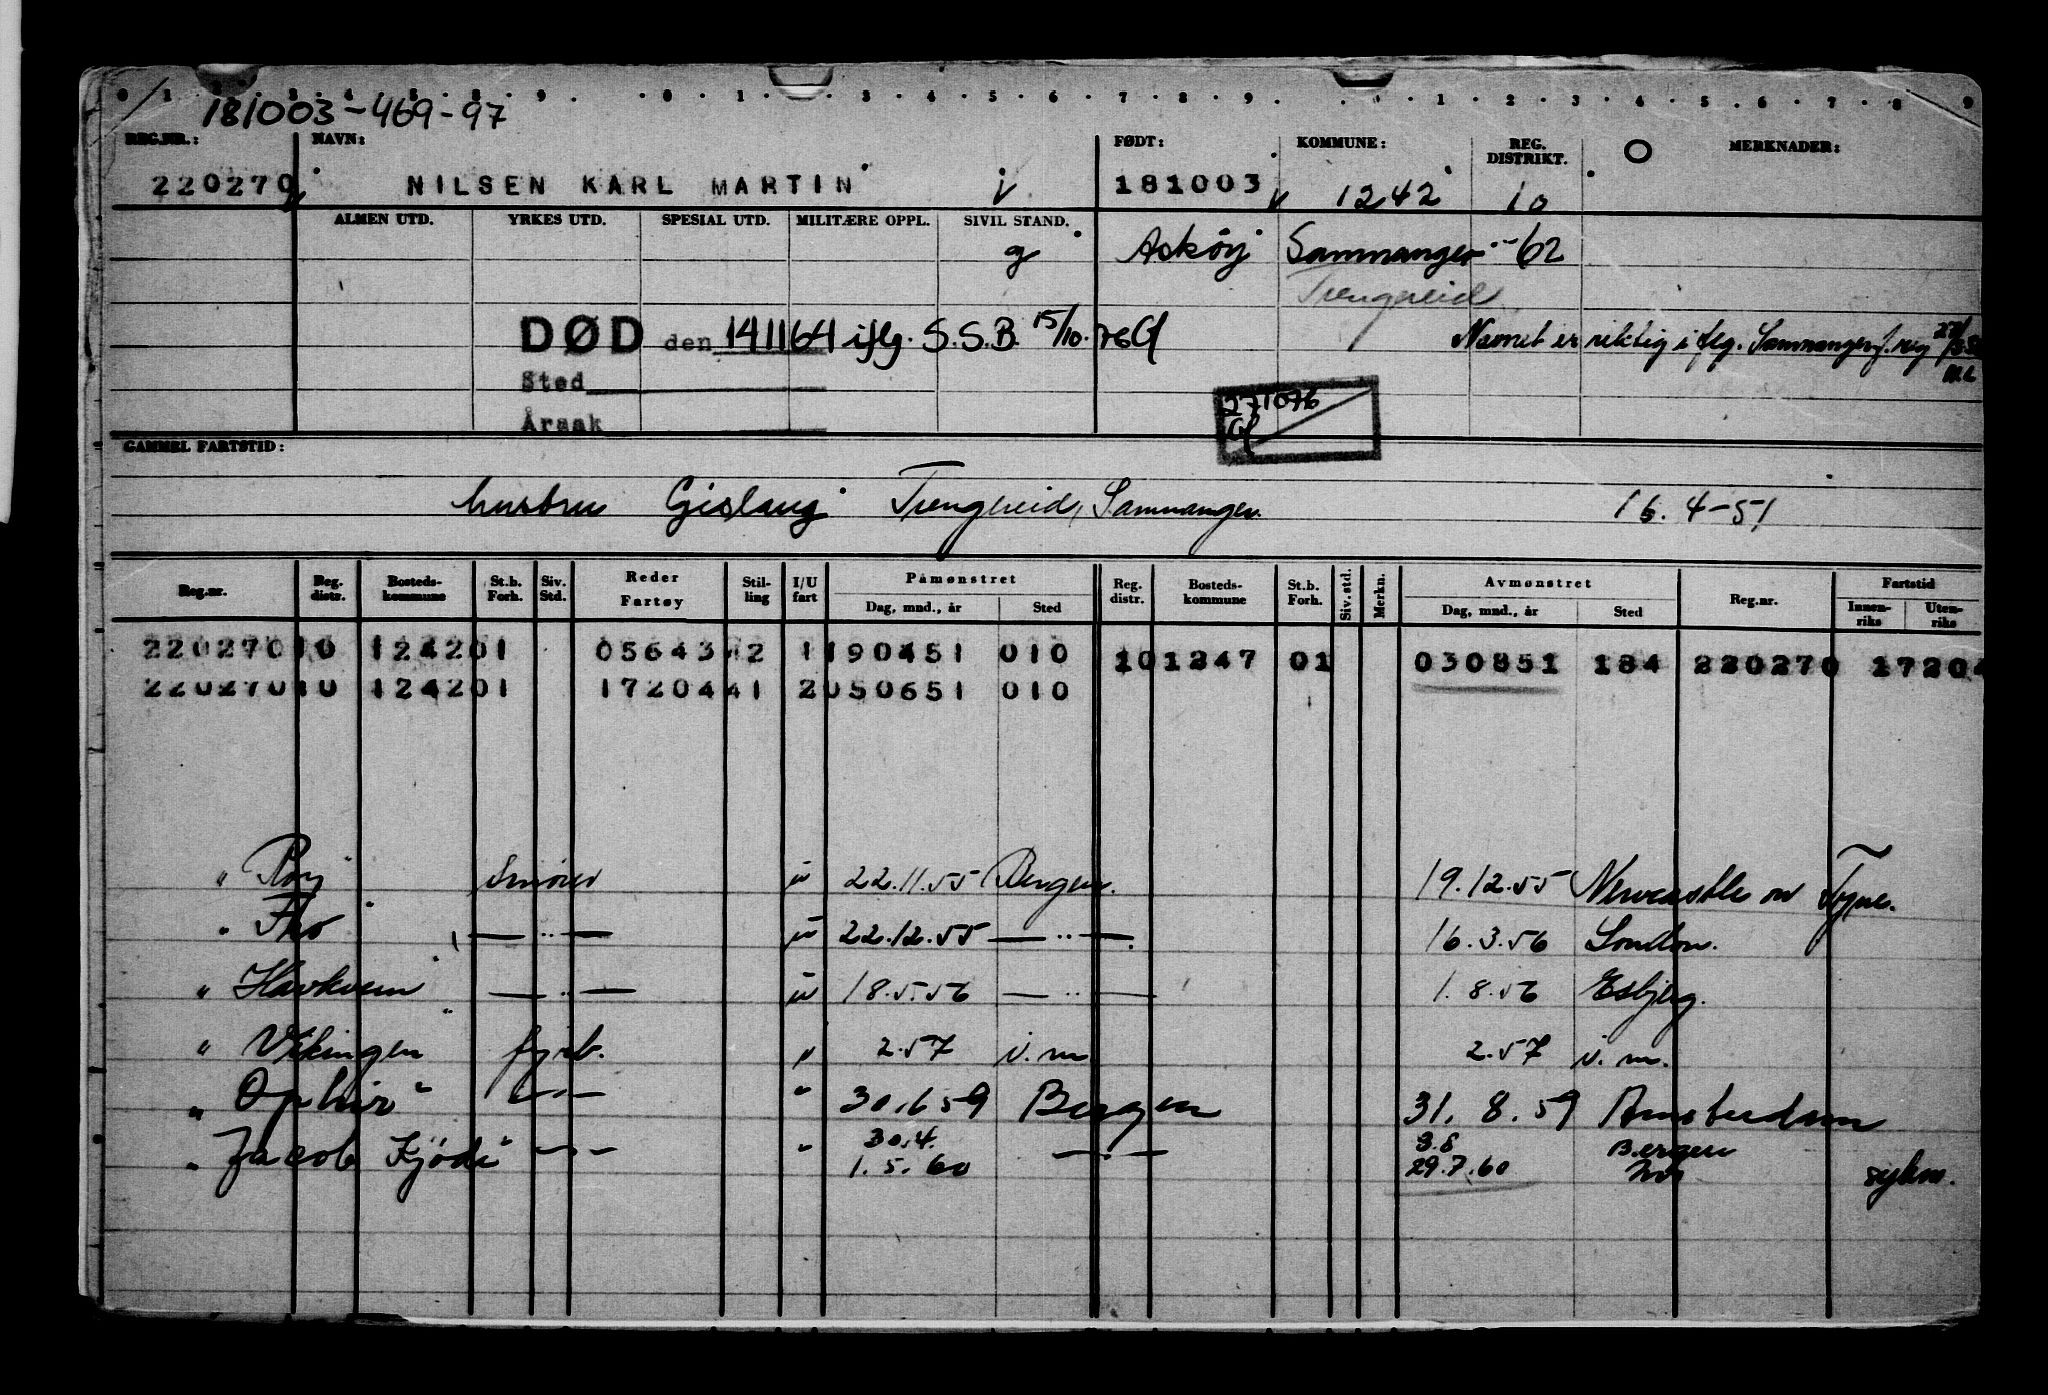 0 1 2 3 4 5 8 9 0 1 3 4 5 6 7 8 9 1 2 3 4 5 6 7 8 9
181003-469-97
REG.NR.: NAVN: FØDT: KOMMUNE: REG. DISTRIKT. MERKNADER:
220270 NILSEN KARL MARTIN 181003 1242 10
ALMEN UTD. YRKES UTD. SPESIAL UTD. MILITÆRE OPPL. SIVIL STAND.
g Askøy Samnanger -62
Trengereid
DØD den 141164 iflg. S.S.B. 15/10.76
Navnet er riktig iflg. Samnanger f. reg 27/
Sted
Årsak
271076
GAMMEL FARTSTID:
hustru Gislaug Trengereid, Samnanger. 16.4-51
Reg.nr. Reg. distr. Bosteds-kommune St.b. Forh. Siv. Std. Reder Fartøy Stil-ling I/U fart Påmønstret Dag, mnd., år Sted Reg. distr. Bosteds-kommune St.b. Forh. Siv. std. Merkn. Avmønstret Dag, mnd., år Sted Reg.nr. Fartstid Innen-riks Uten-riks
220270 10 1242 01 05643 42 1 190451 010 10 1247 01 030851 184 220270 17204
220270 10 1242 01 17204 41 2 050651 010
" Roy Smører u 22.11.55 Bergen. 19.12.55 Newcastle on Tyne.
" Tho — " — u 22.12.55 — " —. 16.3.56 London.
" Havkvern — " — u 18.5.56 — " — 1.8.56 Esbjerg.
" Vikingen fyrb. " 2.57 i.m 2.57 i.m.
" Ophir" — " — " 30.6 59 Bergen 31.8.59 Amsterdam
" Jacob Kjöde" — " — " 30.4. 1.5.60 — " — 3.8 29.7.60 Bergen sykm.